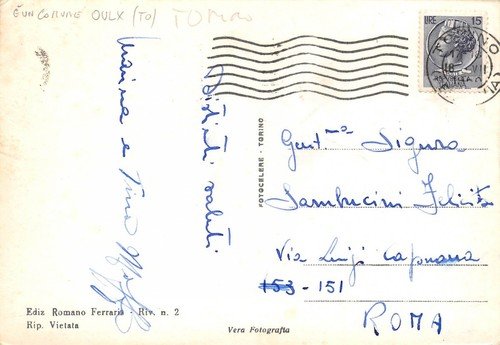 OULX (TO) TORINO
LIRE 15
TORINO
Distinti saluti
Marina e
FOTOCELERE - TORINO
Gent.ma Signora
Sambucini Felicita
Via Luigi Capuana
153 - 151
ROMA
Ediz Romano Ferraris - Riv. n. 2
Rip. Vietata
Vera Fotografia